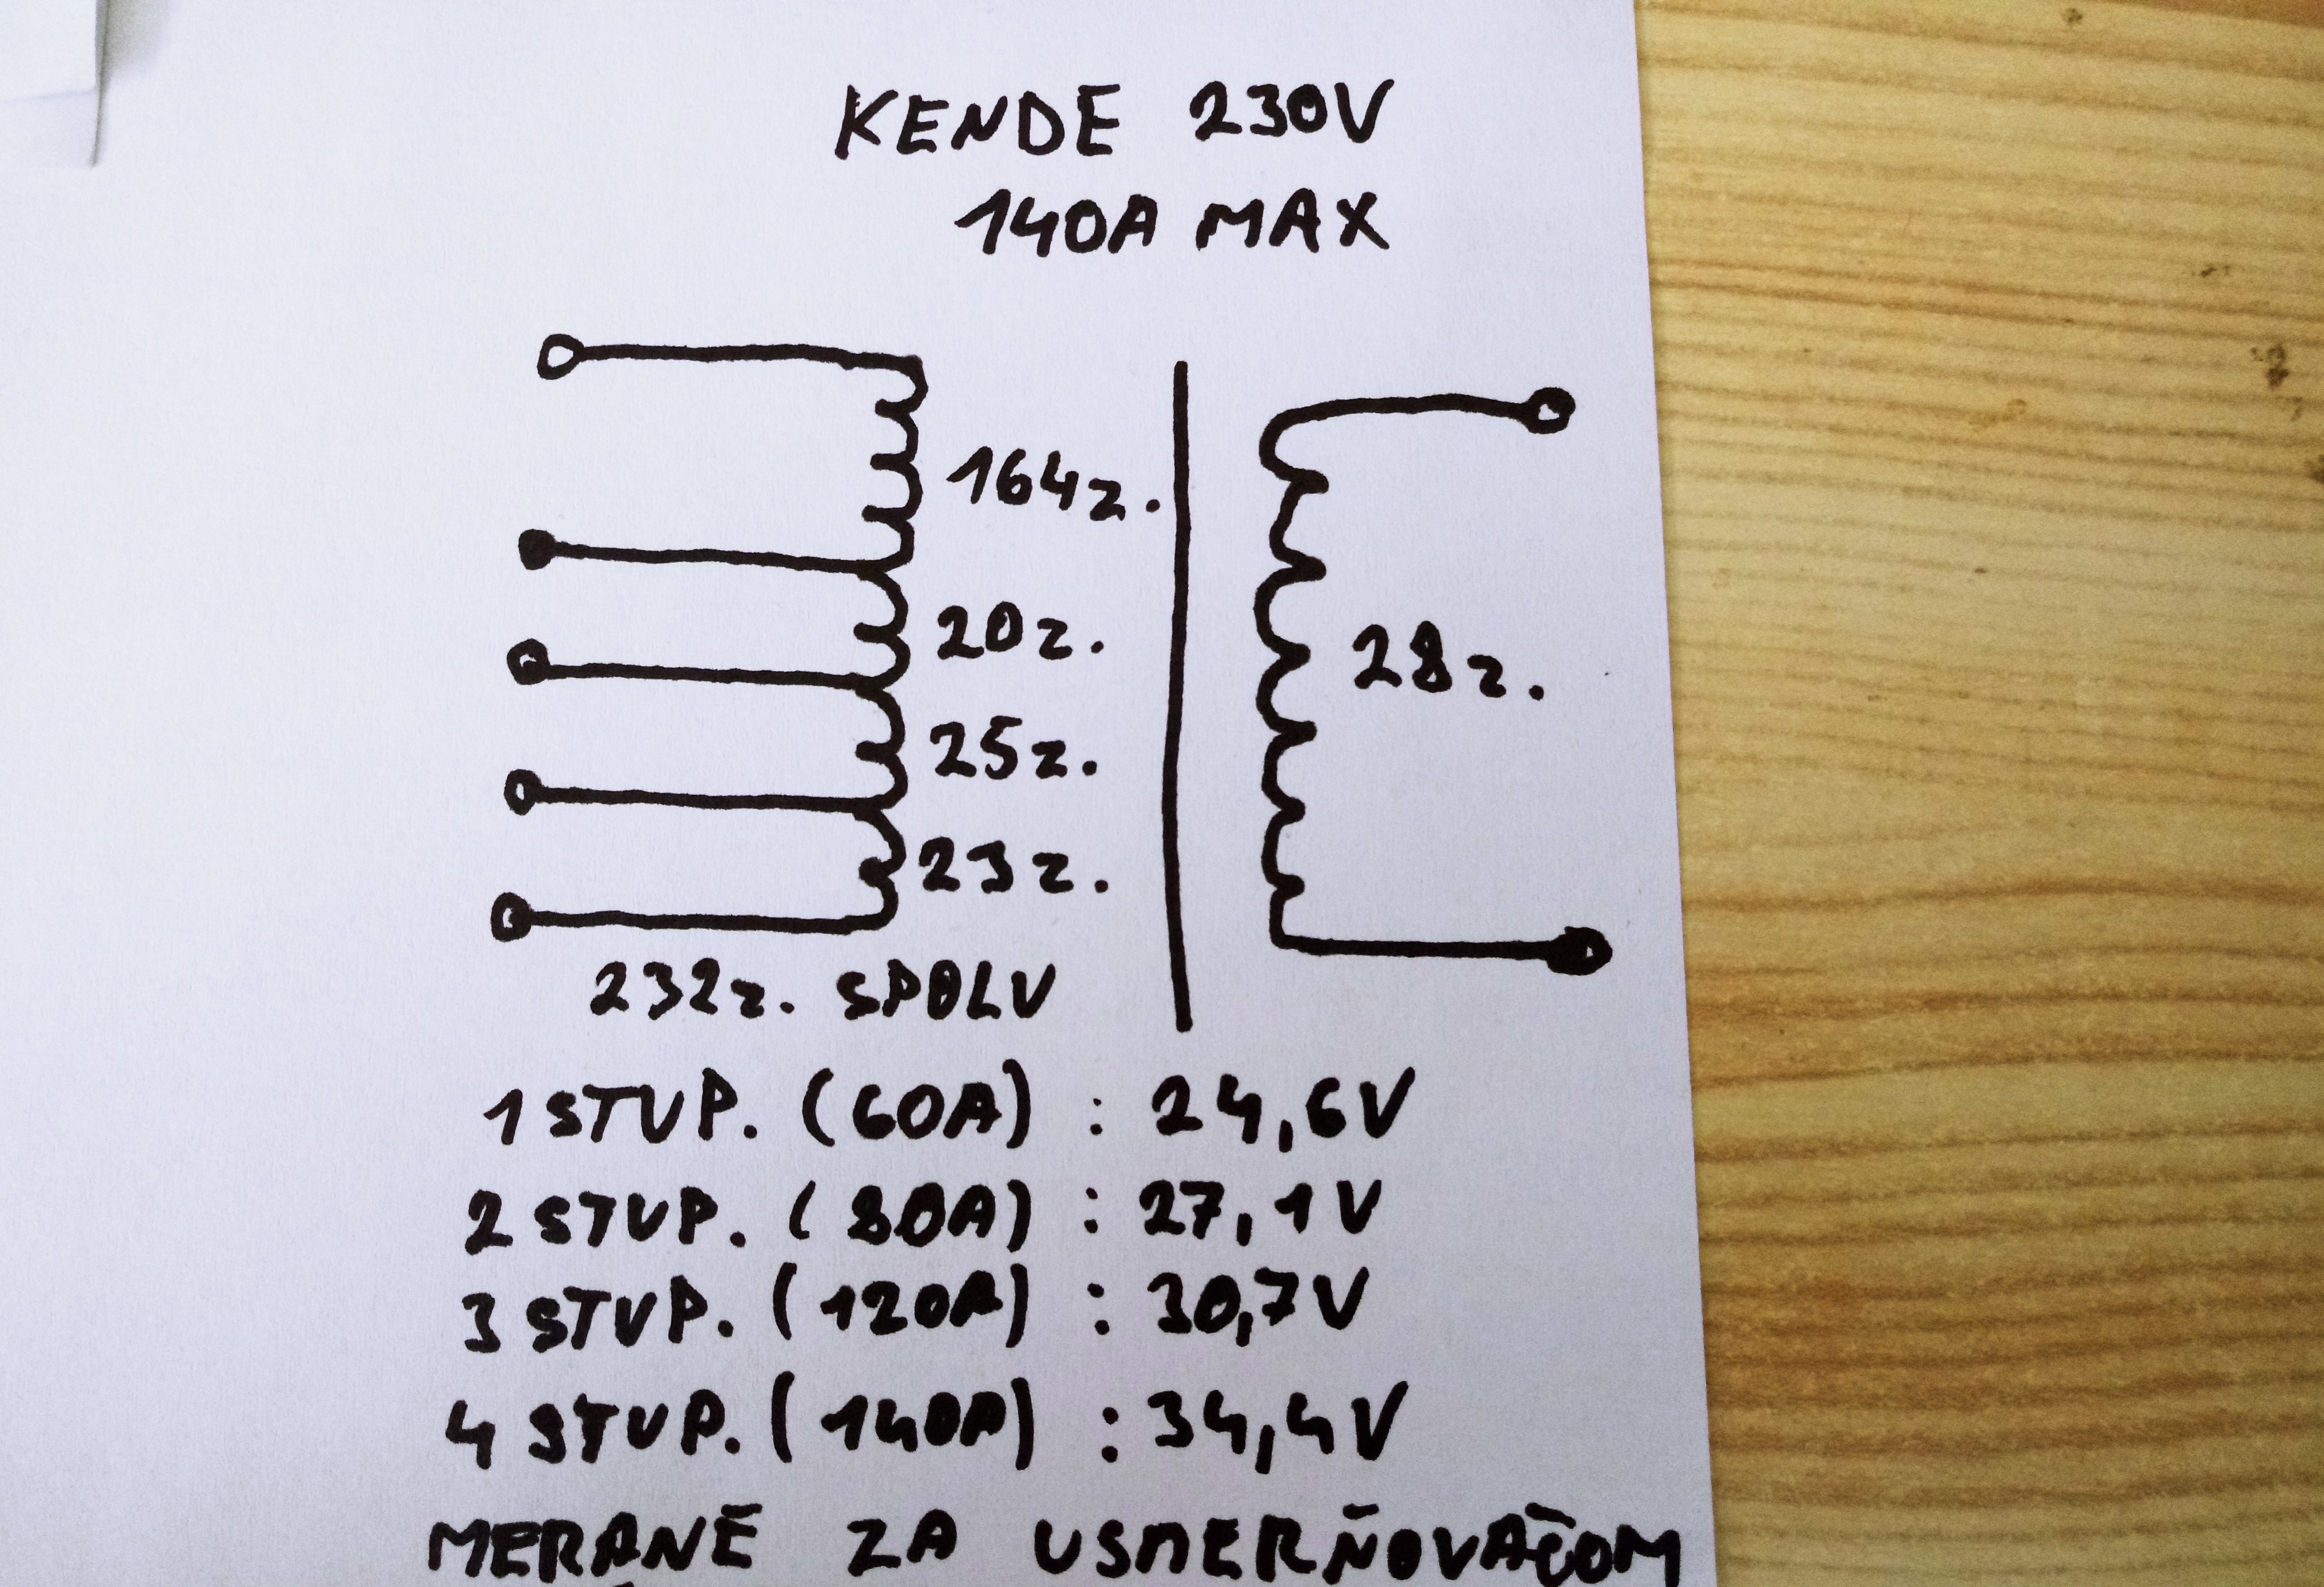 KENDE 230V
140A MAX
164z.
20z.
28z.
25z.
23z.
232z. SPOLU
1 STUP. (60A) : 24,6V
2 STUP. (80A) : 27,1V
3 STUP. (120A) : 30,7V
4 STUP. (140A) : 34,4V
MERANÉ ZA USMERŇOVAČOM